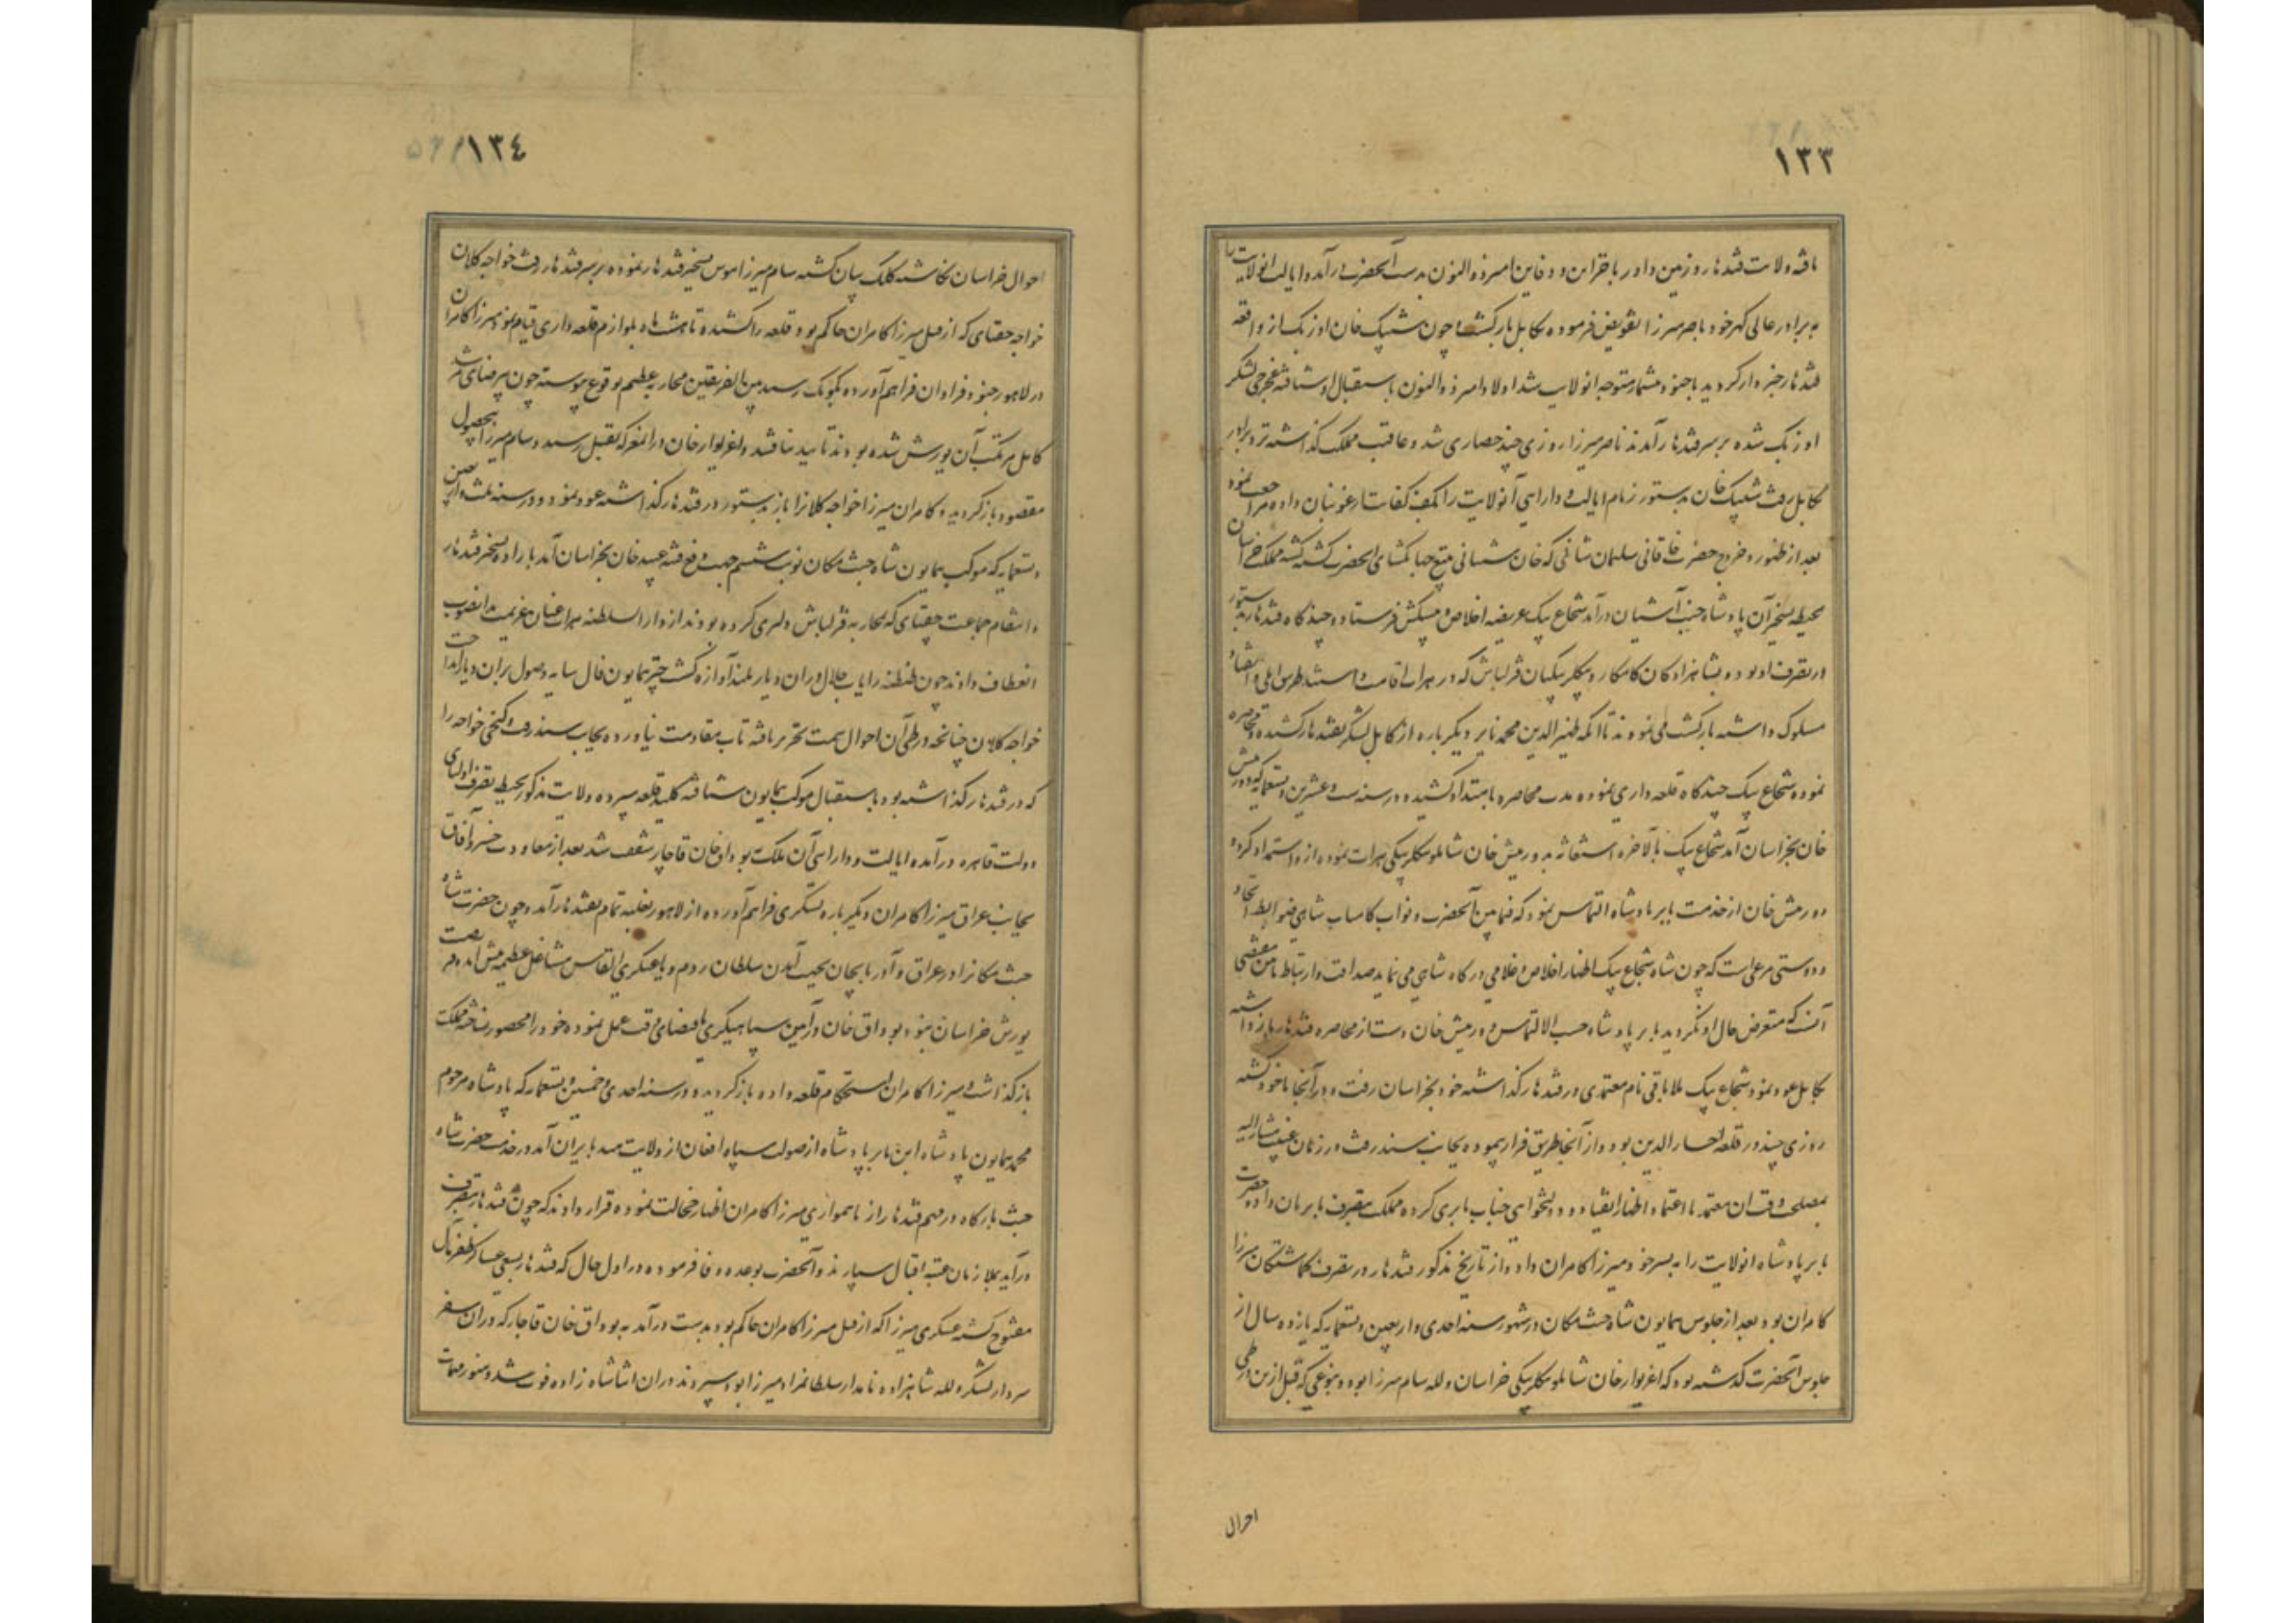 ۱۳۳
یافته ولایت قندهار و زمین داور با خزاین و دفاین امیر ذوالنون بدست آنحضرت درآمد و ایالت انولایت را
به برادر عالی گهر خود ناصر میرزا تفویض فرموده بکابل بازگشت و چون شیبک خان اوزبک از واقعه
قندهار خبردار گردید با جنود بیشمار متوجه انولایت شد اولاد امیر ذوالنون باستقبال او شتافته غجرچی لشکر
اوزبک شده بر سر قندهار آمدند ناصر میرزا روزی چند حصاری شد و عاقبت مملکت گذاشته نزد برادر
بکابل رفت شیبک خان بدستور زمام ایالت و دارایی آنولایت را بکف کفایت ارغونیان داده مراجعت نمود
بعد از ظهور و خروج حضرت خاقانی سلیمان شانی که خان شیبانی بتیغ جهانگشای آنحضرت کشته گشته مملکت خراسان
بحیطه تسخیر آن پادشاه جنت آشیان درآمد شجاع بیک عریضه اخلاص و پیشکش فرستاد و چندگاه قندهار بدستور
در تصرف او بوده بشاهزادگان کامکار و بیگلربیگیان قزلباش که در هرات اقامت داشتند طریق ایلی و انقیاد
مسلوک داشته بازگشت می نمودند تا آنکه ظهیرالدین محمد بابر دیگرباره از کابل لشکر بقندهار کشیده محاصره
نموده شجاع بیک چندگاه قلعه داری نموده مدت محاصره بامتداد کشید و در سنه ست و عشرین و تسعمایه که دورمیش
خان بخراسان آمد شجاع بیک بالآخره استغاثه به دورمیش خان شاملو بیگلربیگی هرات نموده از و استمداد کرد و
دورمیش خان از خدمت بابر پادشاه التماس نمود که فیمابین آنحضرت و نواب کامیاب شاهی ضوابط اتحاد
و دوستی مرعی است که چون شاه شجاع بیک اظهار اخلاص و غلامی درگاه شاهی می نماید صداقت و ارتباط جانبین مقتضی
آنست که متعرض حال او نگردید بابر پادشاه حسب الالتماس دورمیش خان دست از محاصره قندهار باز داشته
بکابل عود نمود شجاع بیک ملا باقی نام معتمدی در قندهار گذاشته خود بخراسان رفت و در آنجا ماخوذ گشته
روزی چند در قلعه اختیارالدین بود و از آنجا طریق فرار پیموده بجانب سند رفت در زمان غیبت مشارالیه
بمصلحت وقت آن معتمد بااعتماد اظهار انقیاد و دولتخواهی جناب بابری کرده مملکت بتصرف بابریان داده حضرت
بابر پادشاه انولایت را به پسر خود میرزا کامران داد و از تاریخ مذکور قندهار در تصرف گماشتگان میرزا
کامران بود بعد از جلوس همایون شاه جنت مکان در شهور سنه احدی و اربعین و تسعمایه که یازده سال از
جلوس آنحضرت گذشته بود که اغزیوار خان شاملو بیگلربیگی خراسان و لله سام میرزا بود و بنوعی که قبل ازین در طی
احوال
۱۳٤
احوال خراسان نگاشته کلک بیان گشته سام میرزا هوس تسخیر قندهار نموده بر سر قندهار رفت خواجه کلان
خواجه جغتای که از قبل میرزا کامران حاکم بود قلعه را کشیده تا هشت ماه بلوازم قلعه داری قیام نمود میرزا کامران
در لاهور جنود فراوان فراهم آورده بکومک رسید بین الفریقین محاربه عظیم بوقوع پیوسته چون بی رضای مرشد
کامل مرتکب آن یورش شده بودند تأیید نیافتند و اغزیوار خان در آن معرکه بقتل رسید و سام میرزا بی حصول
مقصود بازگردید و کامران میرزا خواجه کلانرا باز بدستور در قندهار گذاشته عود نمود و در سنه ثلث و اربعین
و تسعمایه که موکب همایون شاه جنت مکان نوبت ششم جهت دفع فتنه عبید خان بخراسان آمد باراده تسخیر قندهار
و انتقام جماعت جغتای که بمحاربه قزلباش دلیری کرده بودند از دارالسلطنه هرات عنان عزیمت بدانصوب
انعطاف دادند چون طنطنه رایات جلال در آن دیار بلند آوازه گشت چتر همایون فال سایه وصول بر آن دیار انداخت
خواجه کلان چنانچه در طی آن احوال سمت تحریر یافته تاب مقاومت نیاورده بجانب سند رفت و کیخی خواجه را
که در قندهار گذاشته بود باستقبال موکب همایون شتافته کلید قلعه سپرده ولایت مذکور بحیطه تصرف اولیای
دولت قاهره درآمده ایالت و دارایی آن ملک به بوداق خان قاجار شفقت شد بعد از معاودت خسرو آفاق
بجانب عراق میرزا کامران دیگرباره لشکری فراهم آورده از لاهور بغلبه تمام بقندهار آمد و چون حضرت شاه
جنت مکانرا در عراق و آذربایجان بجهت آمدن سلطان روم و یاغیگری القاس مشاغل عظیمه پیش آمده فرصت
یورش خراسان نبود بوداق خان در آیین سپاهیگری باقتضای وقت عمل نموده خود را محصور نساخته مملکت
بازگذاشت و میرزا کامران استحکام قلعه داده بازگردید و در سنه احدی و خمسین و تسعمایه که پادشاه مرحوم
محمد همایون پادشاه ابن بابر پادشاه از صولت سپاه افغان از ولایت هند بایران آمد در خدمت حضرت شاه
جنت بارگاه در مهم قندهار از ناهمواری میرزا کامران اظهار خجالت نموده قرار دادند که چون قندهار بتصرف
درآید بملازمان عتبه اقبال سپارند و آنحضرت بوعده وفا فرموده در اول حال که قندهار بسعی عساکر ظفرمآل
مفتوح گشته عسکری میرزا که از قبل میرزا کامران حاکم بود بدست درآمد به بوداق خان قاجار که در آن سفر
سردار لشکر و لله شاهزاده نامدار سلطان مراد میرزا بود سپردند در آن اثنا شاهزاده فوت شد و هنوز مهمات